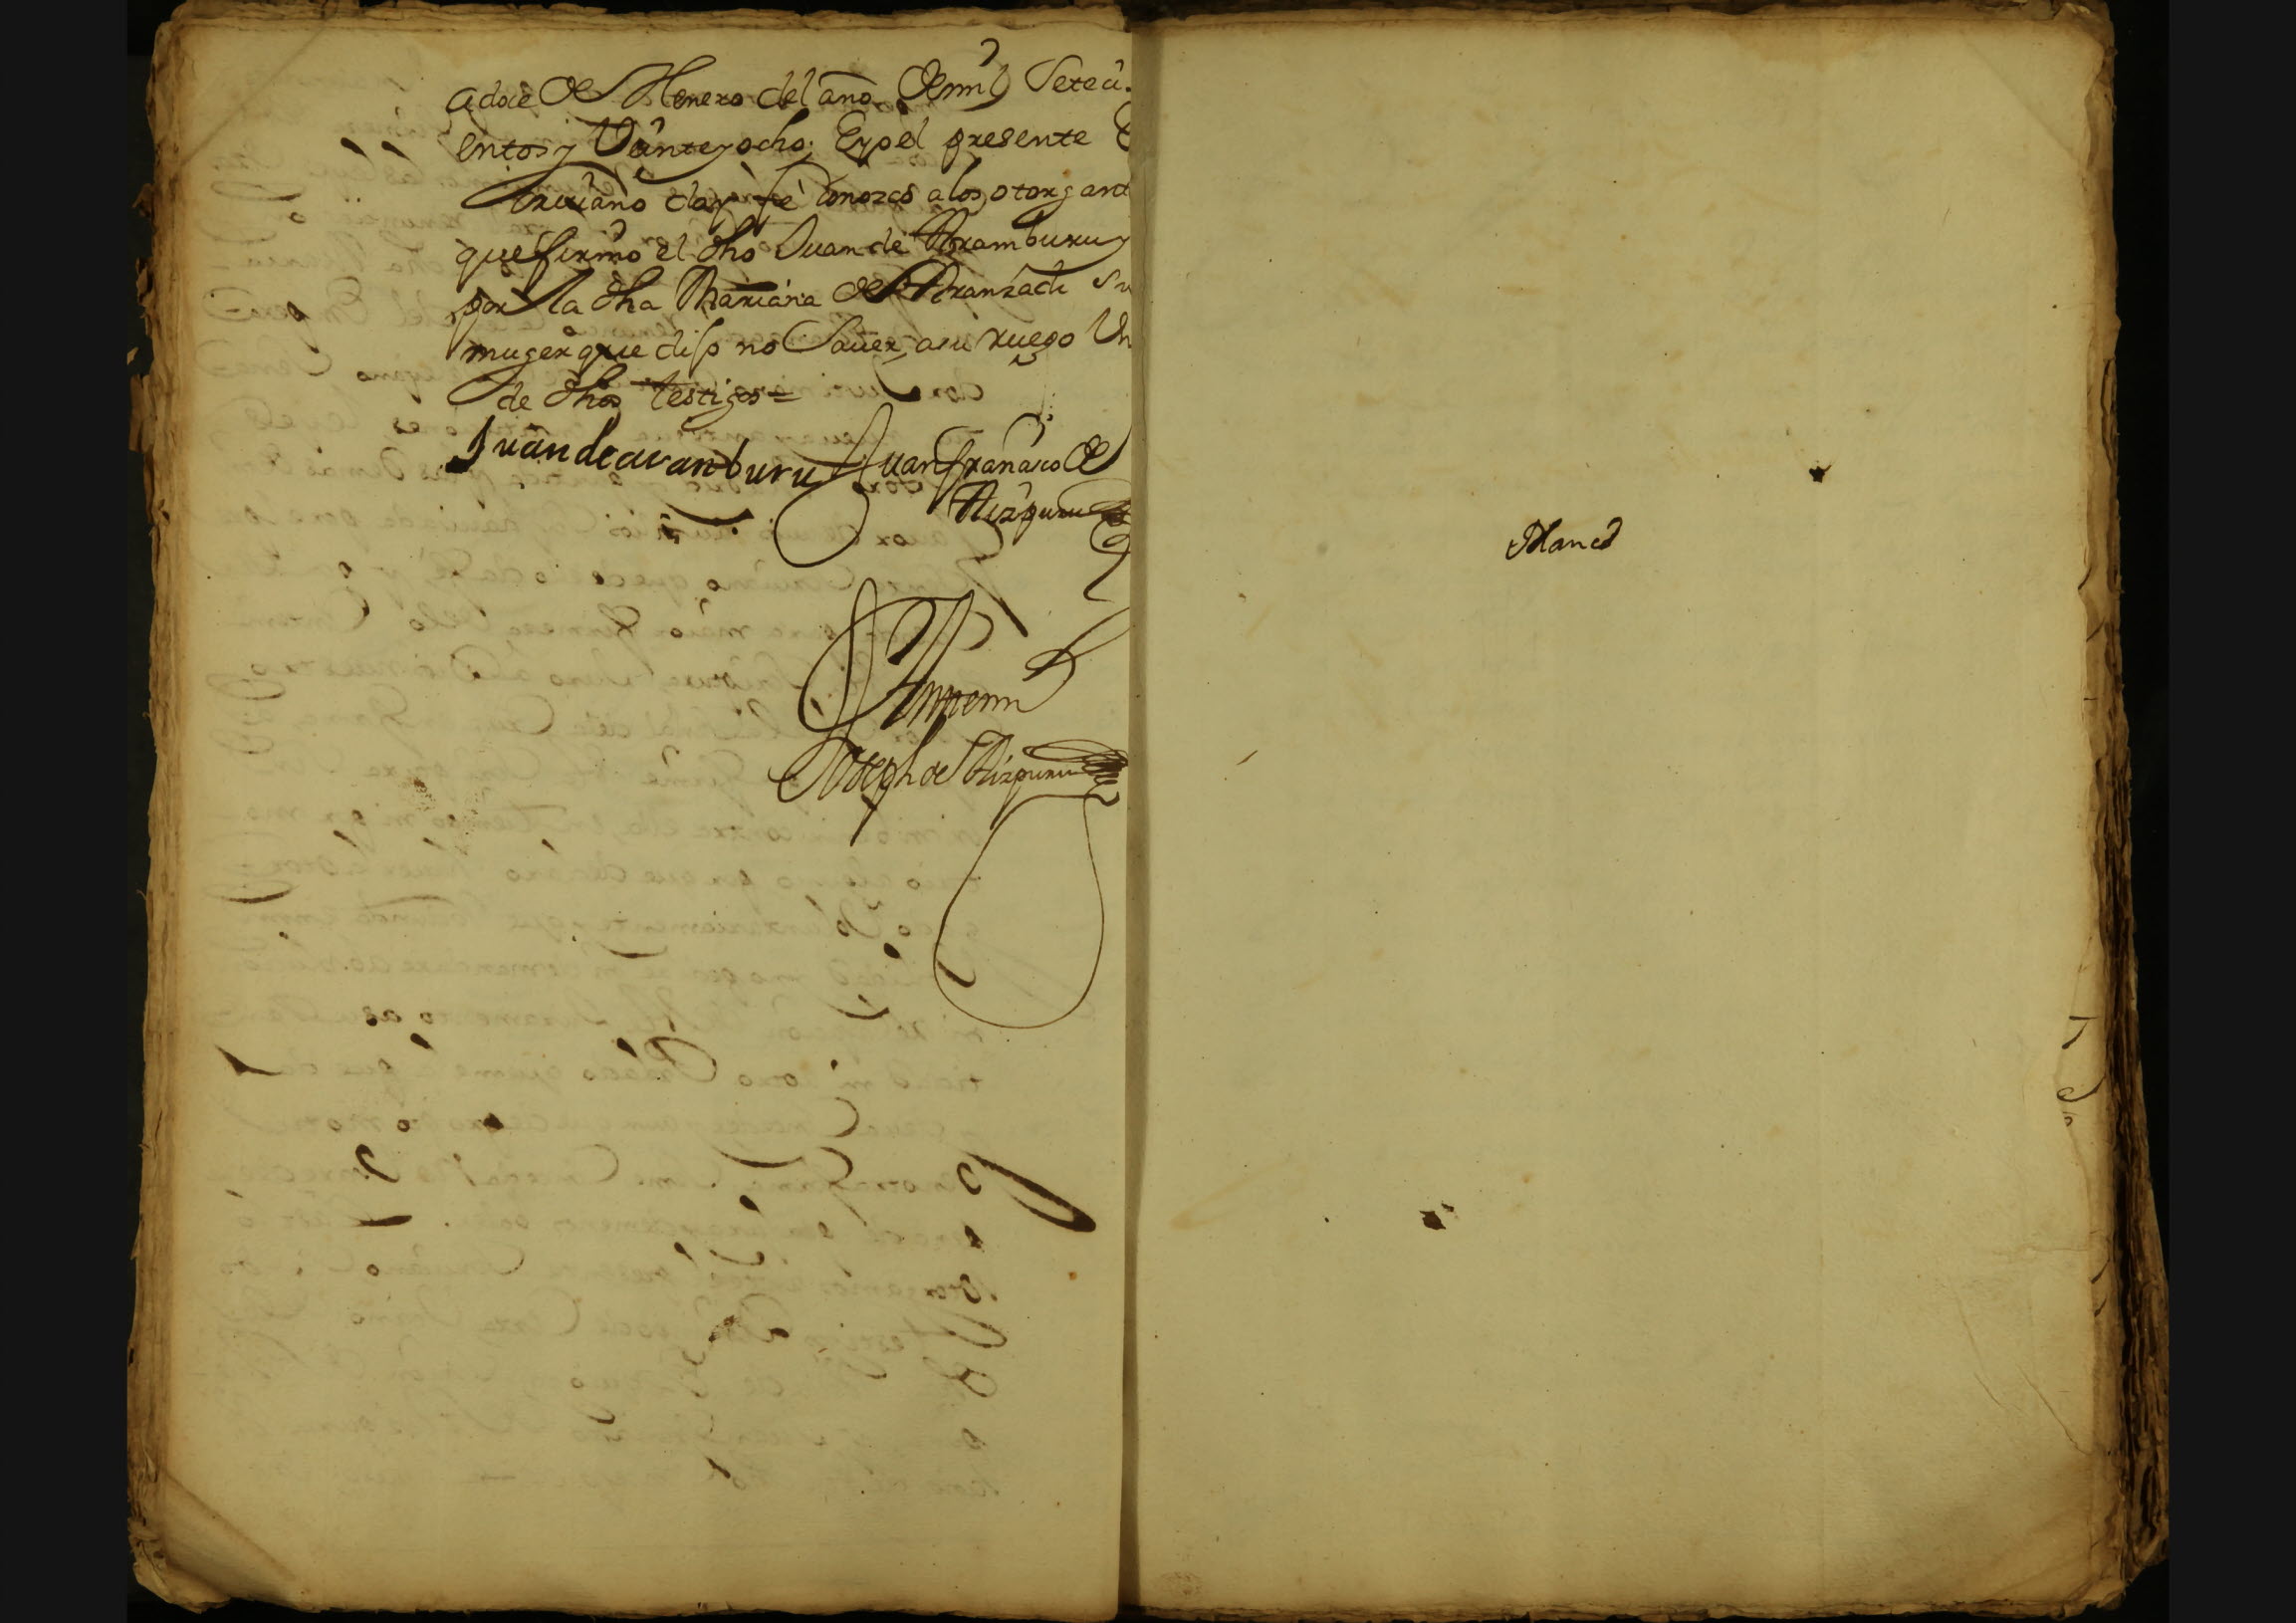 adoce de Henero del año de mil Seteci
entos y Veinte y ocho, E yo el presente
criuano doy fe conozco a los otorgant
que firmo el dho Juan de Aramburu y
por la dha Mariana de Aranzadi su
muger que dijo no Sauer, a su ruego Un
de dhos testigos =
Juan de aranburu Juan francisco de
Aizpuru
Ante mi
Joseph de Aizpuru
Blanco